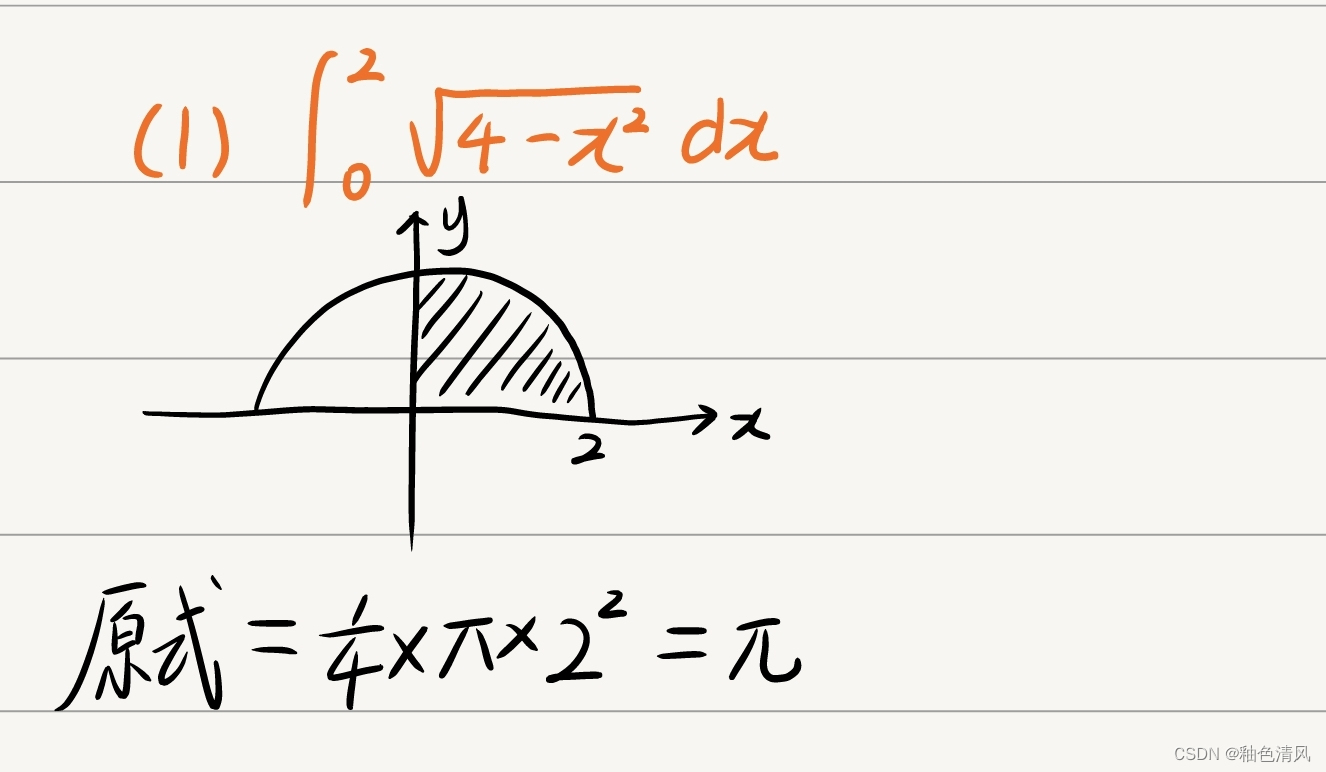 (1) ∫₀² √(4-x²) dx
y
x
2
原式 = 1/4 × π × 2² = π
CSDN @釉色清风